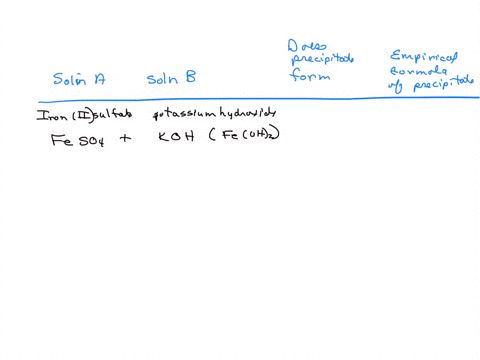 Does
precipitate
form
Empirical
formula
of precipitate
Soln A
Soln B
Iron (II) sulfate potassium hydroxide
FeSO4 + KOH (Fe(OH)2)